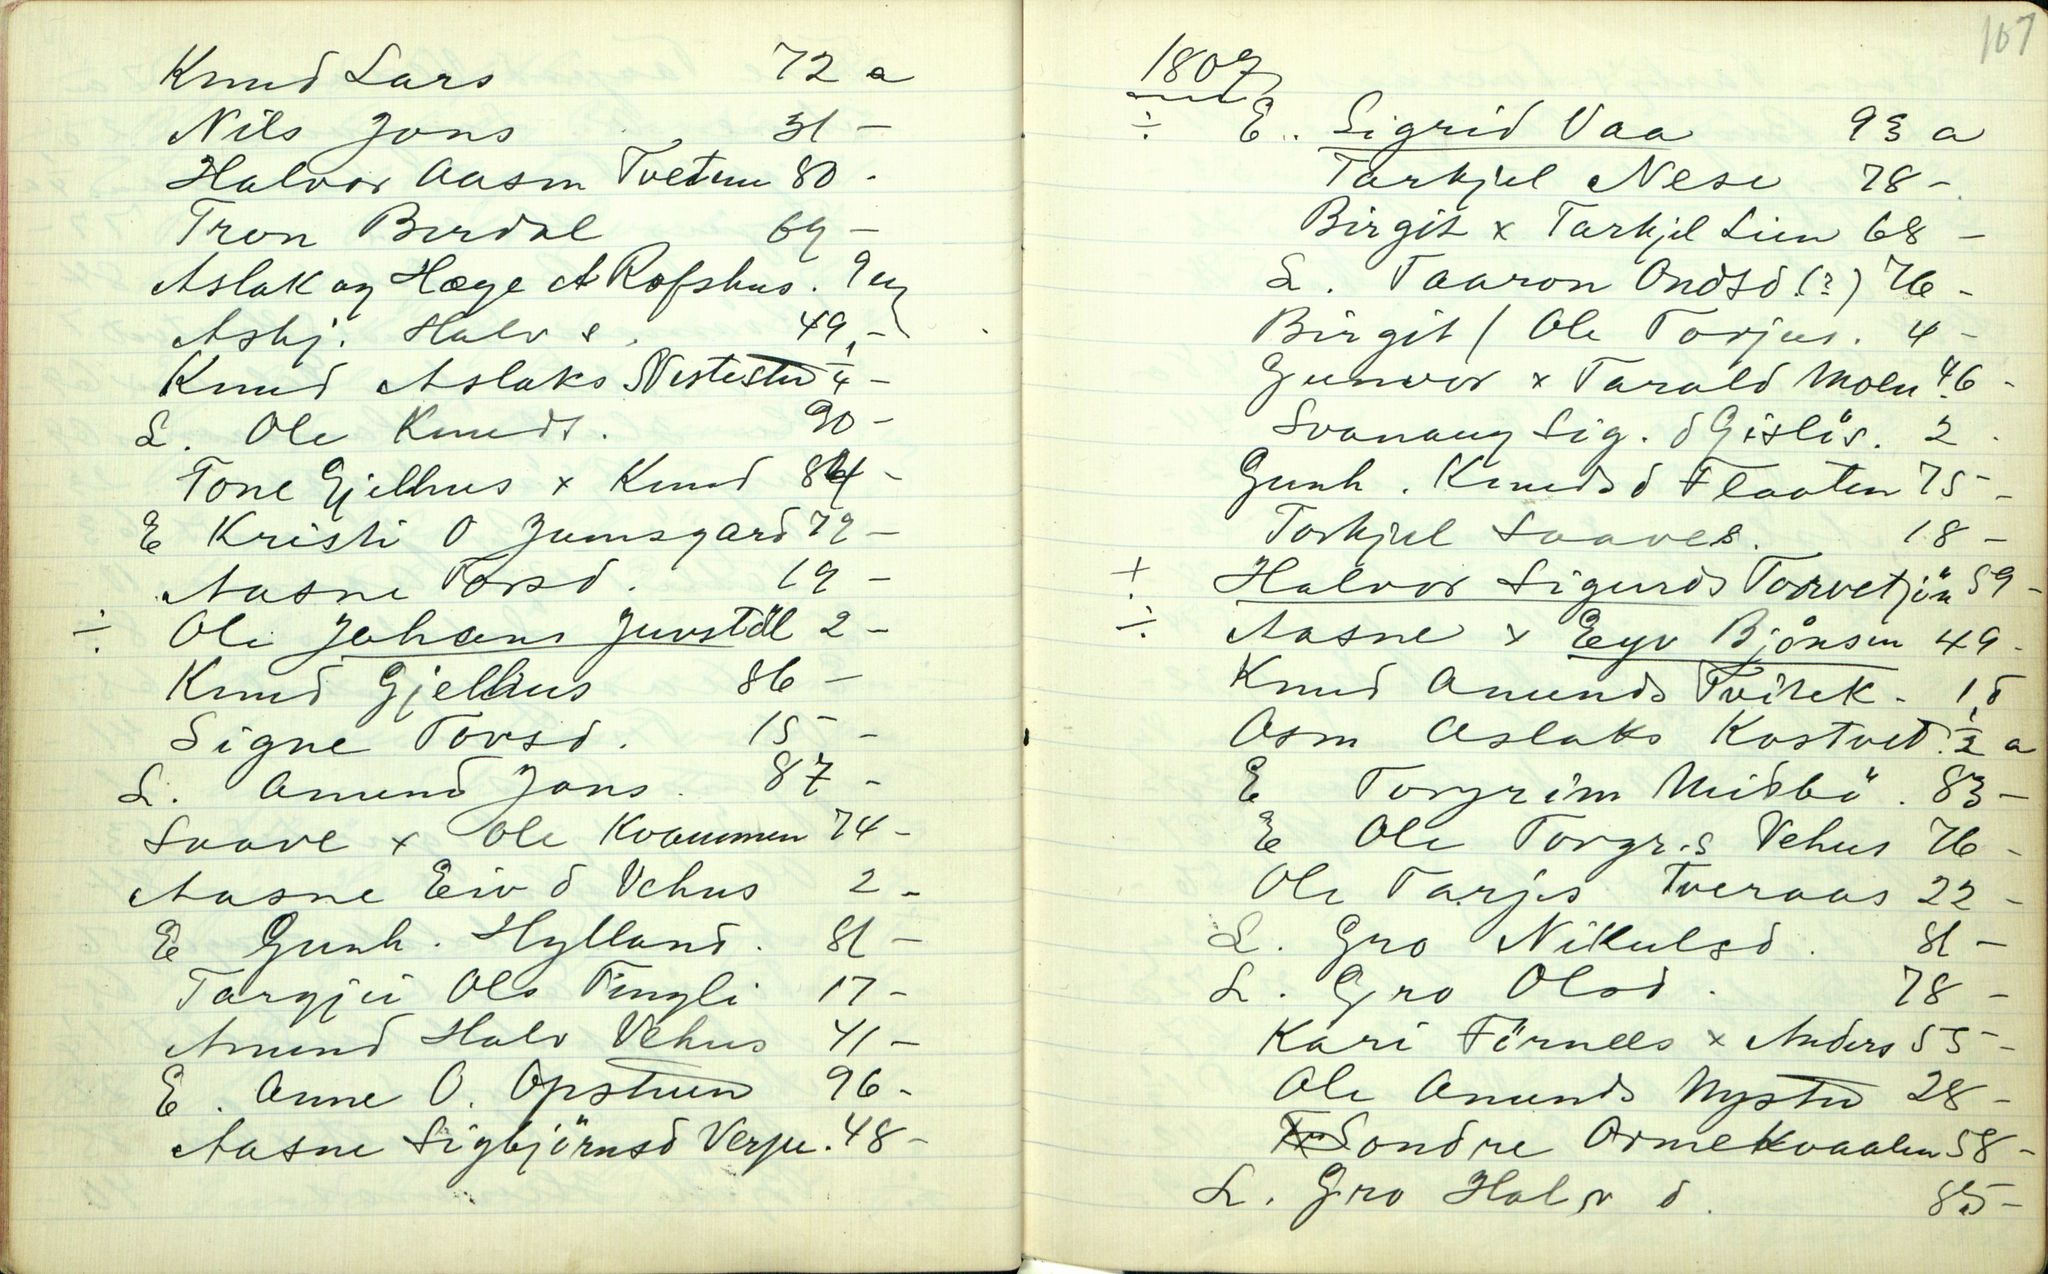 Knud Lars 72 a
Nils Jons 31 —
Halvor Aasm Tvetun 80 -
Tron Berdal 69 —
Aslak og Hæge A Rofshus. 9
Asbj. Halv s. 49 -
Knud Aslaks Nistestu 1/4 -
L. Ole Knuds. 90 -
Tone Gjelhus x Knud 84 -
E Kristi O Jumsgard 79 —
Aasne Torsd. 19 -
÷ Ole Johans Juvstöl 2 -
Knud Gjelhus 86 —
Signe Torsd. 15 -
L. Amund Jons. 87 -
Saave x Ole Kvammen 74 -
Aasne Eiv d Vehus 2 -
E Gunh. Hylland. 81 —
Targjei Ols Tingli 17 -
Amund Halv Vehus 41 -
E. Anne O. Opstuun 96 -
Aasne Sigbjörnsd Verpe. 48 -
107
1809
÷ E. Sigrid Vaa 93 a
Tarkjel Nese 78 -
Birgit x Tarkjel Lien 68 -
L. Taaron Ondsd (?) 76 -
Birgit / Ole Torjus. 4 -
Gunvor x Tarald Moen 46 -
Svanaug Sig. d Gislös. 2 -
Gunh. Knudsd Flaaten 75 -
Torkjel Saaves. 18 -
÷ Halvor Sigurds Torvetjön 59 -
÷ Aasne x Eyv Bjönsen 49 -
Knud Amunds Tvitek - 1,5
Asm Aslaks Kostvet. 1/2 a
E Torgrim Midbö. 83 -
E Ole Torgr.s Vehus 76 -
Ole Tarjs Tveraas 22 -
L. Gro Nikulsd. 81 -
L. Gro Olsd. 78 -
Kari Törnes x Anders 55 -
Ole Amunds Nystu 28 -
Sondre Ormekvaalen 58 -
L. Gro Halv d. 85 -